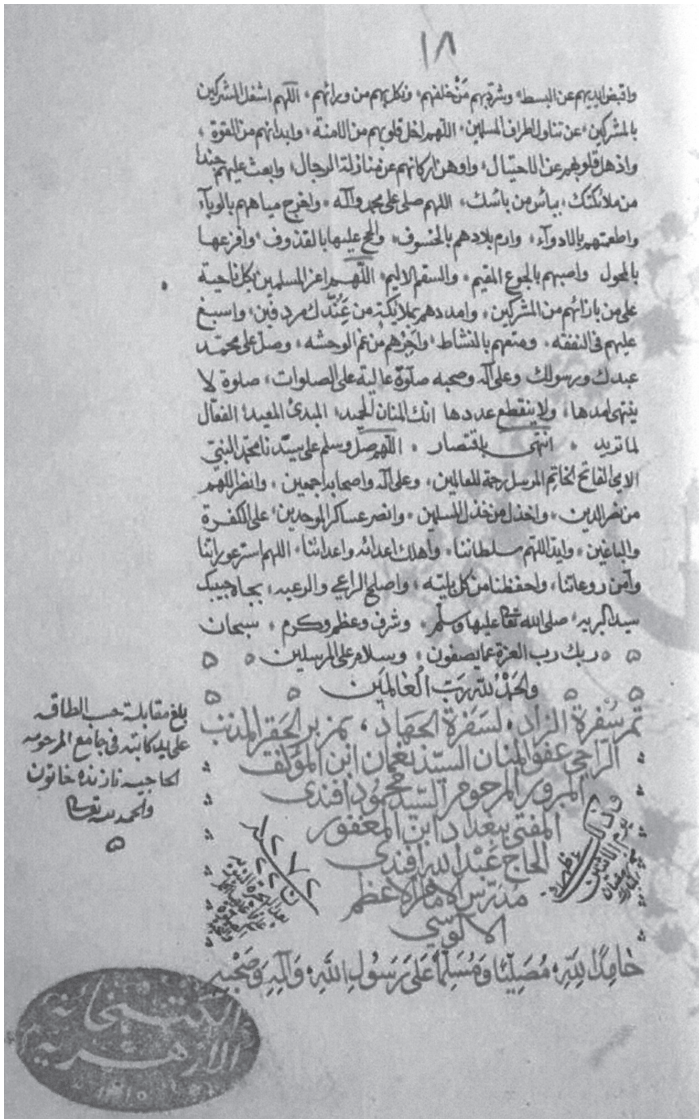 ١٨
واقبض ايديهم عن البسط وشرد بهم من خلفهم ونكل بهم من ورائهم اللهم اشغل المشركين
بالمشركين عن تناول اطراف المسلمين اللهم اخل قلوبهم من الامنة وابدانهم من القوة
واذهل قلوبهم عن الاحتيال واوهن اركانهم عن منازلة الرجال وابعث عليهم جندا
من ملائكتك بباس من باسك اللهم صلى على محمد وآله وامزج مياههم بالوبآء
واطعمتهم بالادوآء وارم بلادهم بالخسوف والح عليها بالقذوف وافرعها
بالمحول واصبهم بالجوع المقيم والسقم الاليم اللهم اعز المسلمين بكل ناحية
على من بازائهم من المشركين وامددهم بملائكة من عندك مردفين واسبغ
عليهم فى النفقه ومتعهم بالنشاط واجرهم من غم الوحشه وصل على محمد
عبدك ورسولك وعلى آله وصحبه صلوة عالية على الصلوات صلوة لا
ينتهى امدها ولا ينقطع عددها انك المنان الحميد المبدئ المعيد الفعال
لما تريد انتهى باقتصار اللهم صل وسلم على سيدنا محمد النبي
الامى الفاتح الخاتم المرسل رحمة للعالمين وعلى آله واصحابه اجمعين وانصر اللهم
من نصر الدين واخذل من خذل المسلمين وانصر عساكر الموحدين على الكفرة
والباغين وايد اللهم سلطاننا واهلك اعدائه واعدائنا اللهم استر عوراتنا
وآمن روعاتنا واحفظنا من كل بلية واصلح الراعي والرعيه بجاه حبيبك
سيد البريه صلى الله تعالى عليه وسلم وشرف وعظم وكرم سبحان
ربك رب العزة عما يصفون وسلام على المرسلين
والحمد لله رب العالمين
تم سفرة الزاد لسفرة الجهاد الحقير المذنب
الراجي عفو المنان السيد نعمان ابن المؤلف
المبرور المرحوم السيد محمود افندى
المفتى ببغداد ابن المغفور
الحاج عبد الله افندى
مدرس الامام الاعظم
الالوسي
حامدا لله مصليا ومسلما على رسول الله وآله وصحبه
بلغ مقابلة حسب الطاقه
على يد كاتبه فى جامع المرحومه
الحاجيه نازنده خاتون
والحمد لله تعالى
الكتبخانة
الازهرية